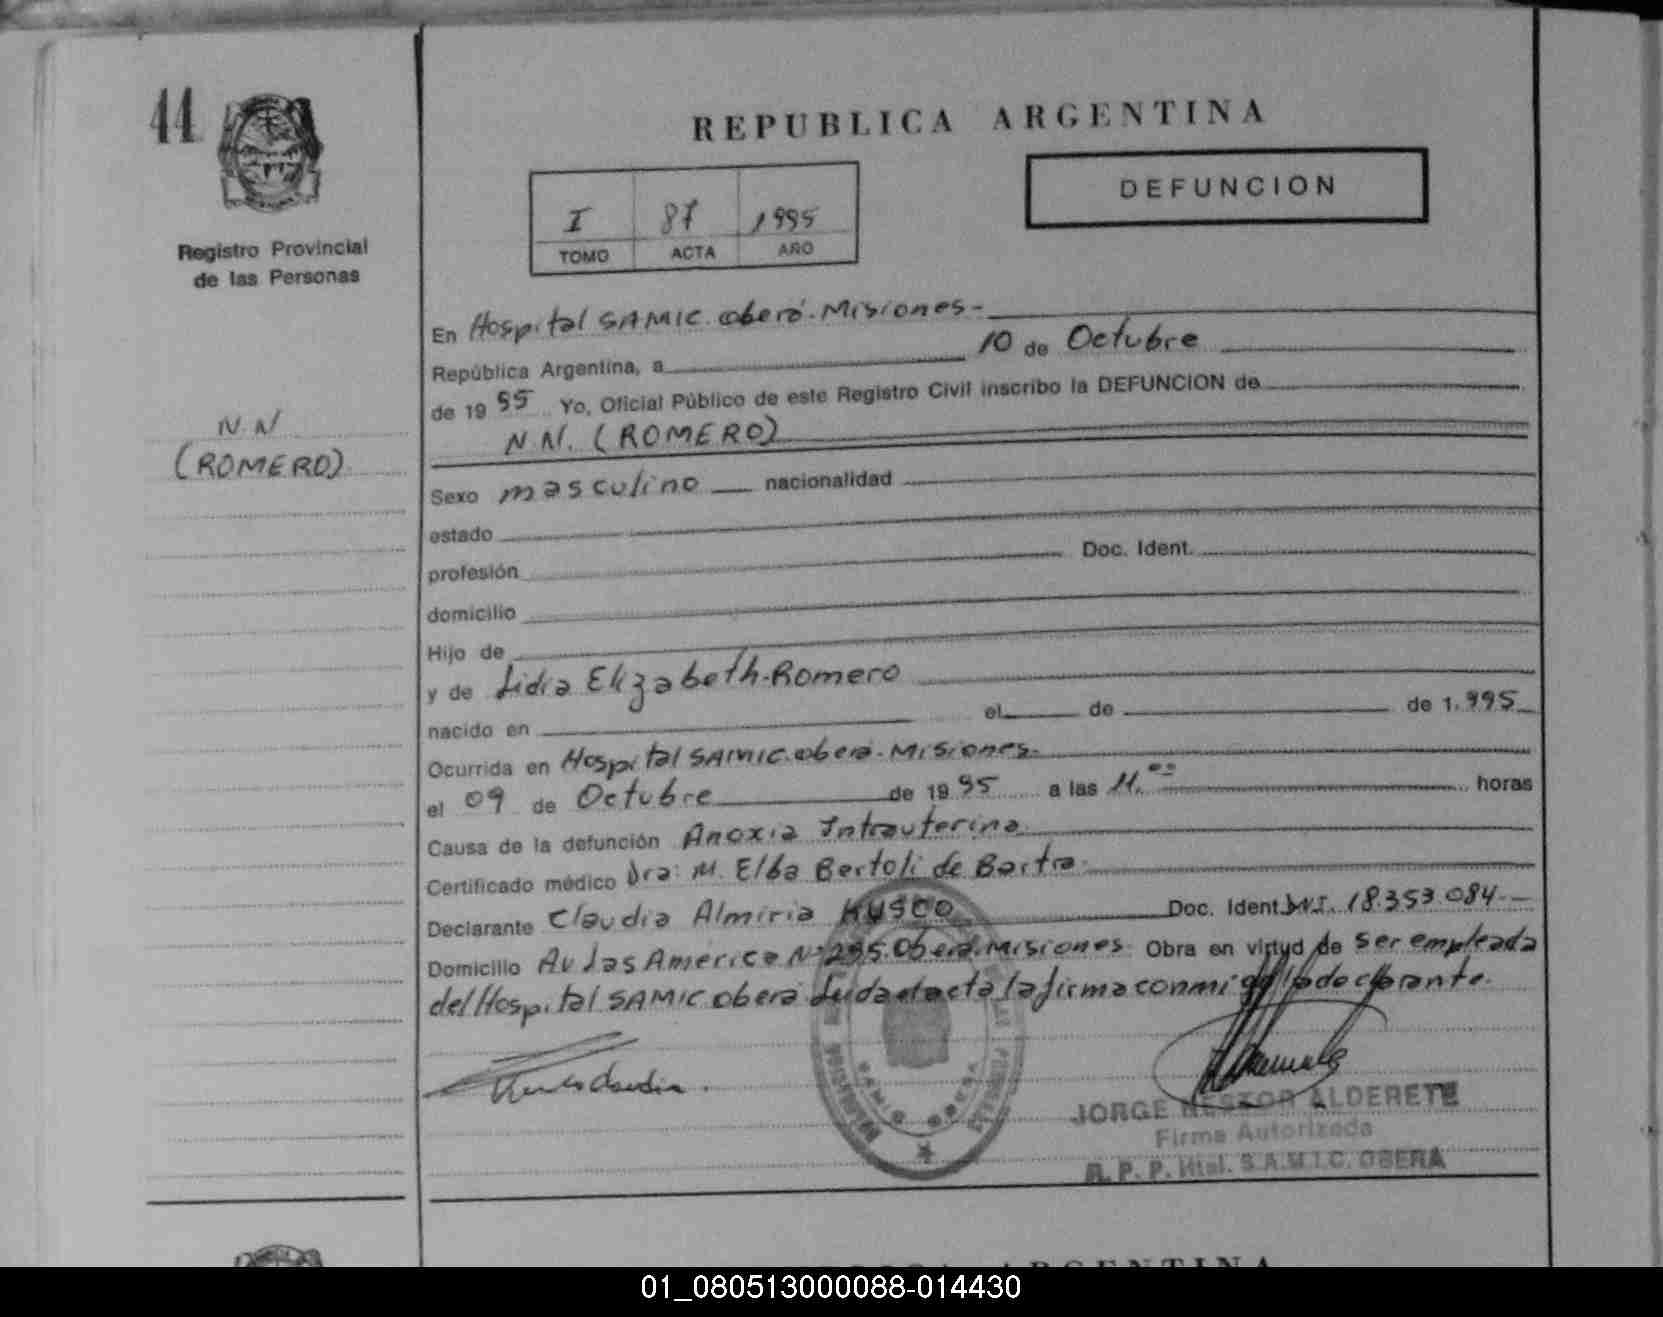 44
REPUBLICA ARGENTINA
DEFUNCION
I 87 1995
TOMO ACTA AÑO
Registro Provincial
de las Personas
N.N
(ROMERO)
En Hospital SAMIC. oberá. Misiones -
República Argentina, a 10 de Octubre
de 19 95 Yo, Oficial Público de este Registro Civil inscribo la DEFUNCION de
N.N. (ROMERO)
Sexo masculino nacionalidad
estado
profesión Doc. Ident.
domicilio
Hijo de
y de Lidia Elizabeth Romero
nacido en el de de 1.995
Ocurrida en Hospital SAMIC. oberá. Misiones.
el 09 de Octubre de 19 95 a las 11.00 horas
Causa de la defunción Anoxia Intrauterina
Certificado médico Dra: M. Elba Bertoli de Bartra
Declarante Claudia Almiria KUSCO Doc. Ident. 18.353.084
Domicilio Av las America Nº 295. Oberá. Misiones Obra en virtud de ser empleada
del Hospital SAMIC oberá Leída el acta la firma conmigo la declarante.
JORGE NESTOR ALDERETE
Firma Autorizada
R. P. P. Htal. S.A.M.I.C. OBERA
SAMIC OBERA
ARGENTINA
01_080513000088-014430